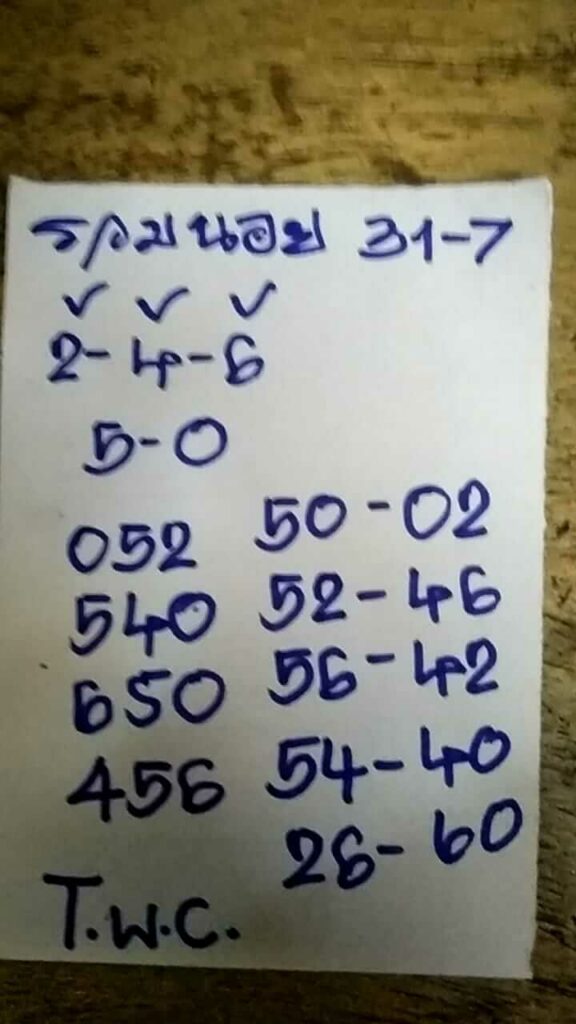 รวมนอย 31-7
✓ ✓ ✓
2-4-6
5-0
052 50-02
540 52-46
650 56-42
456 54-40
26-60
T.พ.C.